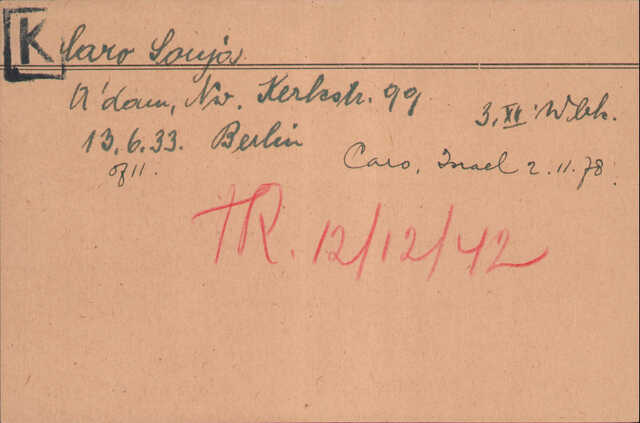 K
Caro Sonja
A'dam, Nw. Kerkstr. 99
3.XI Wbk.
13.6.33. Berlin
Caro, Israel 2.11.78.
TR. 12/12/42